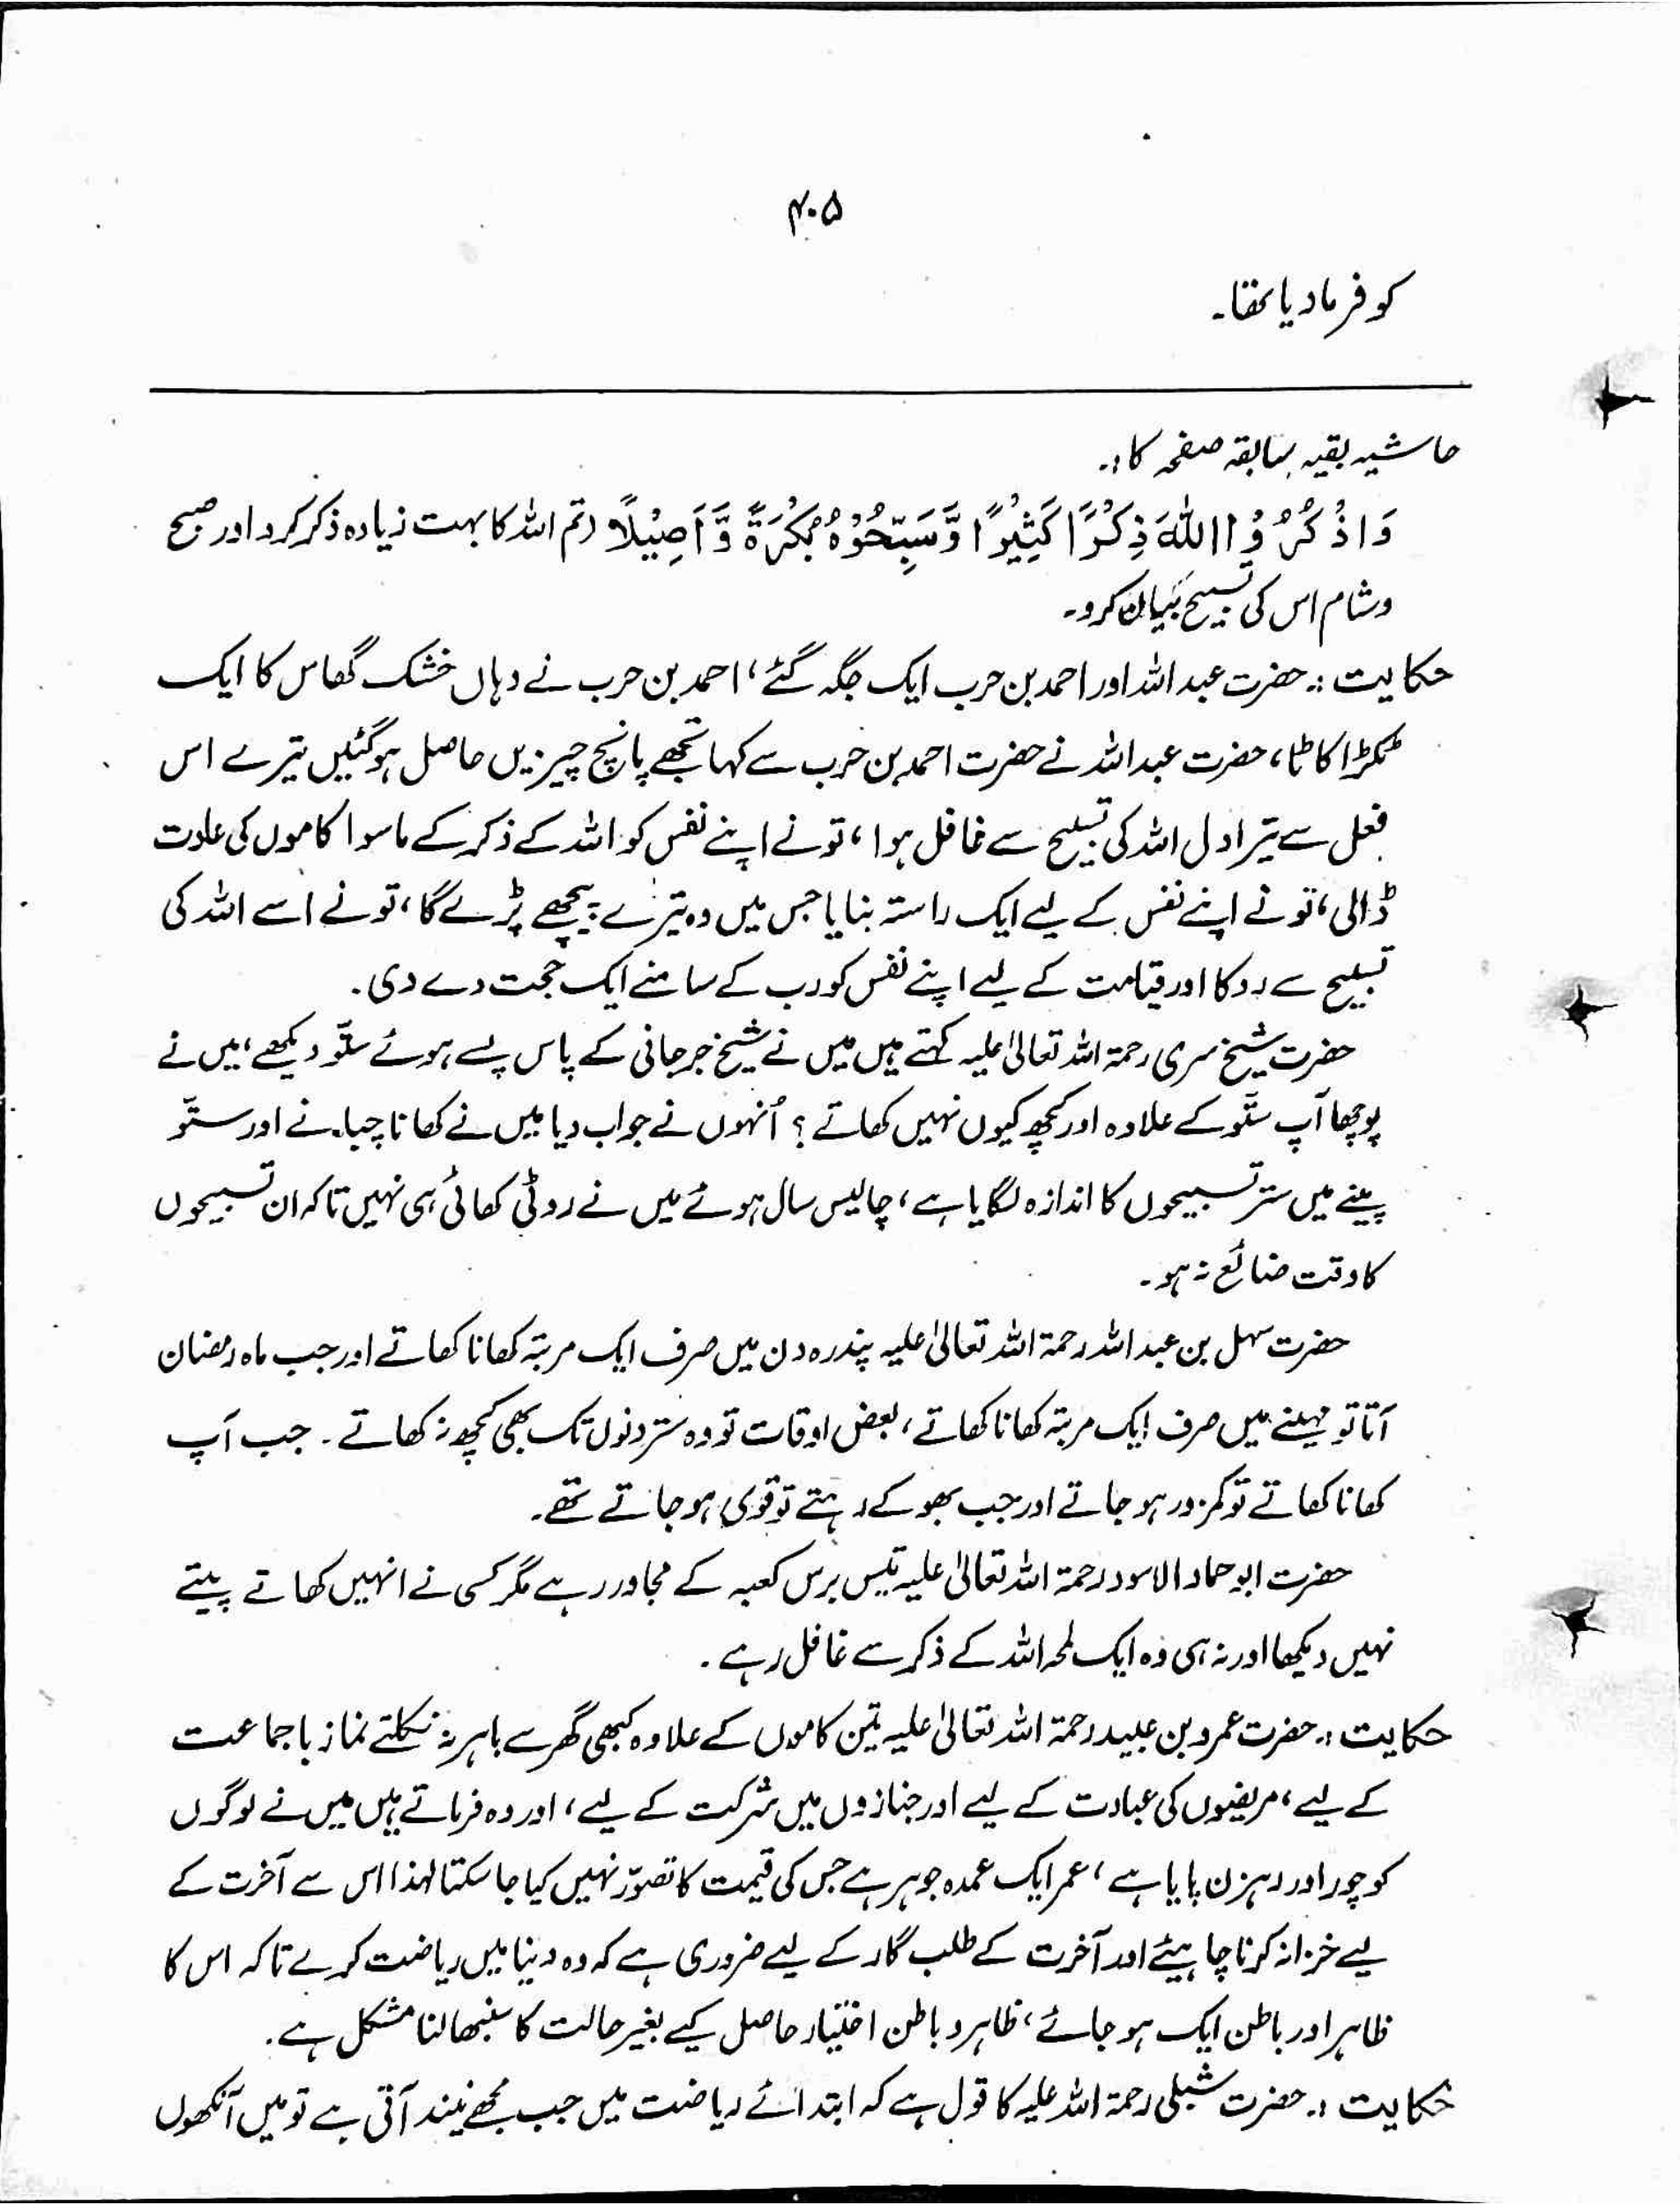 ۴۰۵
کو فرمادیا تھا۔
حاشیہ بقیہ سابقہ صفحہ کا :۔
وَاذْكُرُوْا اللّٰهَ ذِكْرًا كَثِيْرًا وَّسَبِّحُوْهُ بُكْرَةً وَّاَصِيْلًا (تم اللہ کا بہت زیادہ ذکر کرو اور صبح
وشام اس کی تسبیح بیان کرو۔
حکایت :۔ حضرت عبداللہ اور احمد بن حرب ایک جگہ گئے، احمد بن حرب نے وہاں خشک گھاس کا ایک
ٹکڑا کاٹا، حضرت عبداللہ نے حضرت احمد بن حرب سے کہا تجھے پانچ چیزیں حاصل ہوگئیں تیرے اس
فعل سے تیرا دل اللہ کی تسبیح سے غافل ہوا، تو نے اپنے نفس کو اللہ کے ذکر کے ماسوا کاموں کی عادت
ڈالی، تو نے اپنے نفس کے لیے ایک راستہ بنایا جس میں وہ تیرے پیچھے پڑے گا، تو نے اسے اللہ کی
تسبیح سے روکا اور قیامت کے لیے اپنے نفس کو رب کے سامنے ایک حجت دے دی۔
حضرت شیخ سری رحمۃ اللہ تعالیٰ علیہ کہتے ہیں میں نے شیخ جرجانی کے پاس پسے ہوئے ستّو دیکھے، میں نے
پوچھا آپ ستّو کے علاوہ اور کچھ کیوں نہیں کھاتے؟ اُنہوں نے جواب دیا میں نے کھانا چبانے اور ستّو
پینے میں ستر تسبیحوں کا اندازہ لگایا ہے، چالیس سال ہوئے میں نے روٹی کھائی ہی نہیں تاکہ ان تسبیحوں
کا وقت ضائع نہ ہو۔
حضرت سہل بن عبداللہ رحمۃ اللہ تعالیٰ علیہ پندرہ دن میں صرف ایک مرتبہ کھانا کھاتے اور جب ماہ رمضان
آتا تو مہینے میں صرف ایک مرتبہ کھانا کھاتے، بعض اوقات تو وہ ستر دنوں تک بھی کچھ نہ کھاتے۔ جب آپ
کھانا کھاتے تو کمزور ہو جاتے اور جب بھوکے رہتے تو قوی ہو جاتے تھے۔
حضرت ابو حماد الاسود رحمۃ اللہ تعالیٰ علیہ تیس برس کعبہ کے مجاور رہے مگر کسی نے انہیں کھاتے پیتے
نہیں دیکھا اور نہ ہی وہ ایک لمحہ اللہ کے ذکر سے غافل رہے۔
حکایت :۔ حضرت عمرو بن عبید رحمۃ اللہ تعالیٰ علیہ تین کاموں کے علاوہ کبھی گھر سے باہر نہ نکلتے نماز باجماعت
کے لیے، مریضوں کی عبادت کے لیے اور جنازوں میں شرکت کے لیے، اور وہ فرماتے ہیں میں نے لوگوں
کو چور اور رہزن پایا ہے، عمر ایک عمدہ جوہر ہے جس کی قیمت کا تصوّر نہیں کیا جا سکتا لہذا اس سے آخرت کے
لیے خزانہ کرنا چاہیئے اور آخرت کے طلب گار کے لیے ضروری ہے کہ وہ دنیا میں ریاضت کرے تاکہ اس کا
ظاہر اور باطن ایک ہو جائے، ظاہر و باطن اختیار حاصل کیے بغیر حالت کا سنبھالنا مشکل ہے۔
حکایت :۔ حضرت شبلی رحمۃ اللہ علیہ کا قول ہے کہ ابتدائے ریاضت میں جب مجھے نیند آتی ہے تو میں آنکھوں